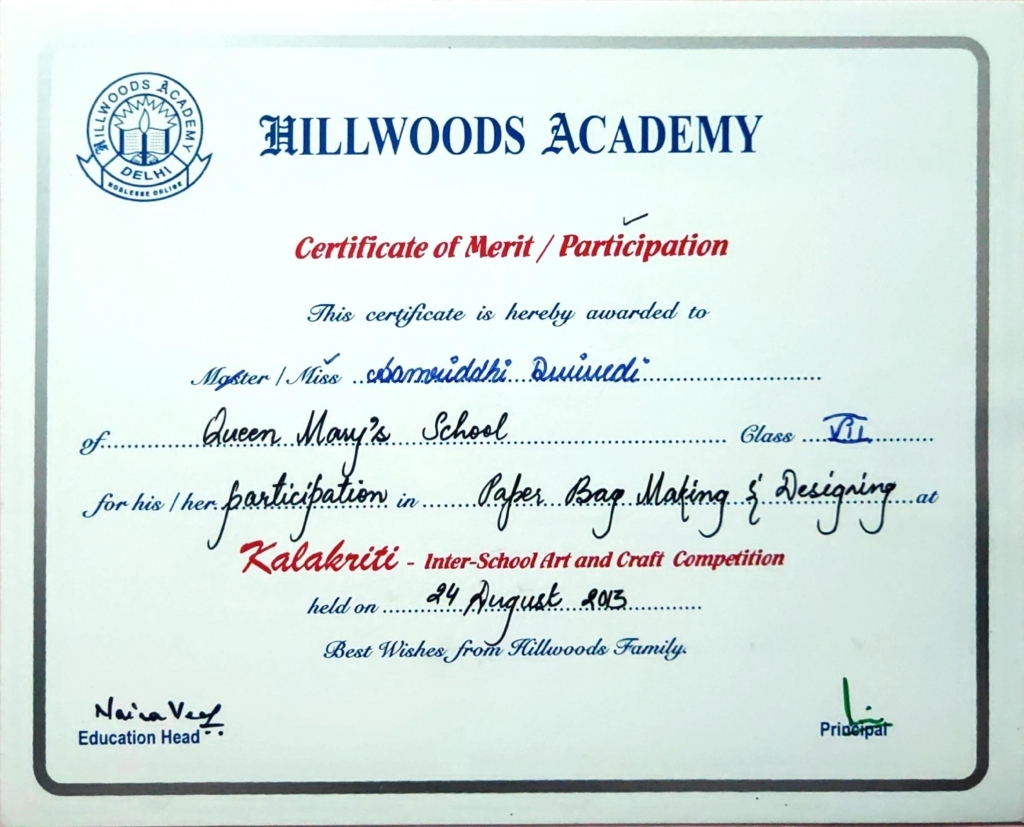 HILLWOODS ACADEMY
DELHI
NOBLESSE OBLIGE
HILLWOODS ACADEMY
Certificate of Merit / Participation
This certificate is hereby awarded to
Master / Miss Samriddhi Dwivedi
of Queen Mary's School Class VII
for his / her participation in Paper Bag Making & Designing at
Kalakriti - Inter-School Art and Craft Competition
held on 24 August 2013
Best Wishes from Hillwoods Family.
Naina
Education Head
Principal